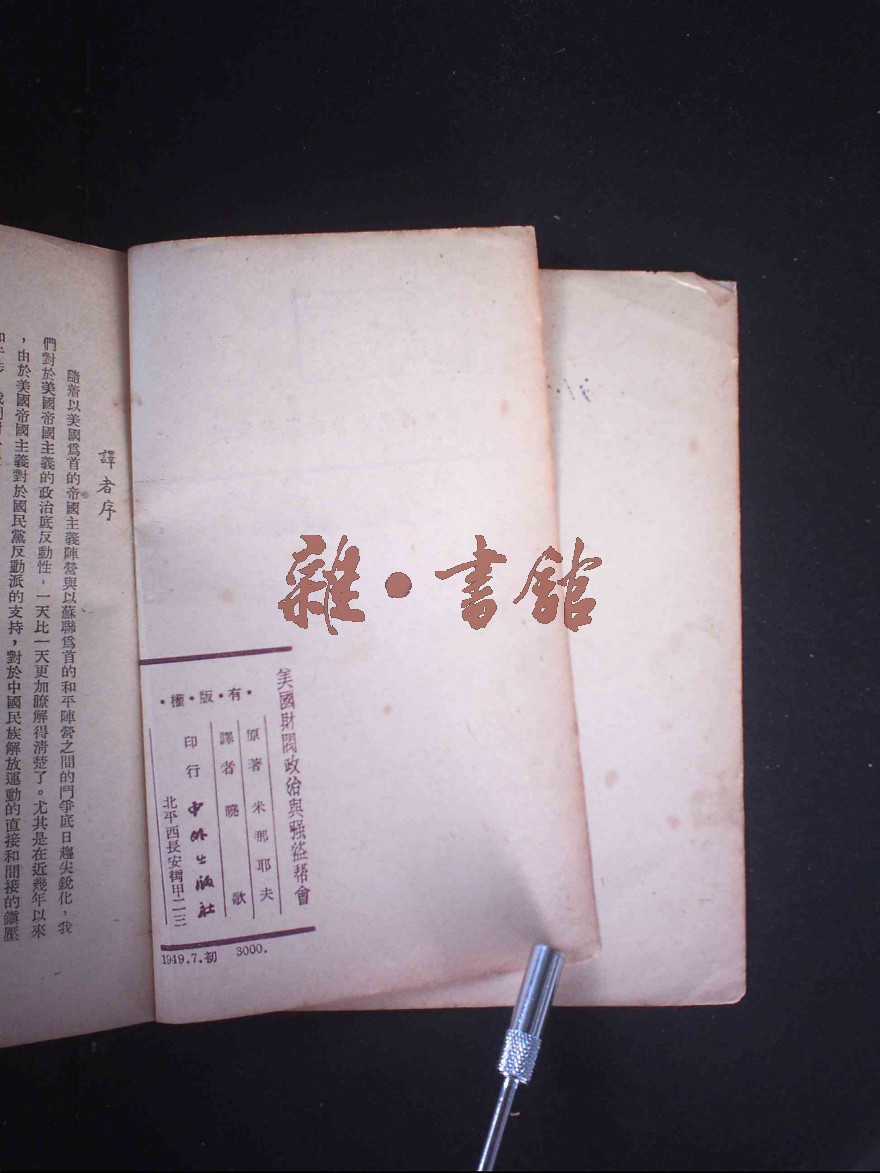 雜·書館
美國財閥政治與強盜幫會
原著 米那耶夫
譯者 曉歌
印行 中外出版社
北平西長安街甲二三
·有·版·權·
1949.7.初 3000.
譯者序
隨着以美國爲首的帝國主義陣營與以蘇聯爲首的和平陣營之間的鬥爭底日趨尖銳化，我
們對於美國帝國主義的政治底反動性，一天比一天更加瞭解得清楚了。尤其是在近幾年以來
，由於美國帝國主義對於國民黨反動派的支持，對於中國民族解放運動的直接和間接的鎭壓